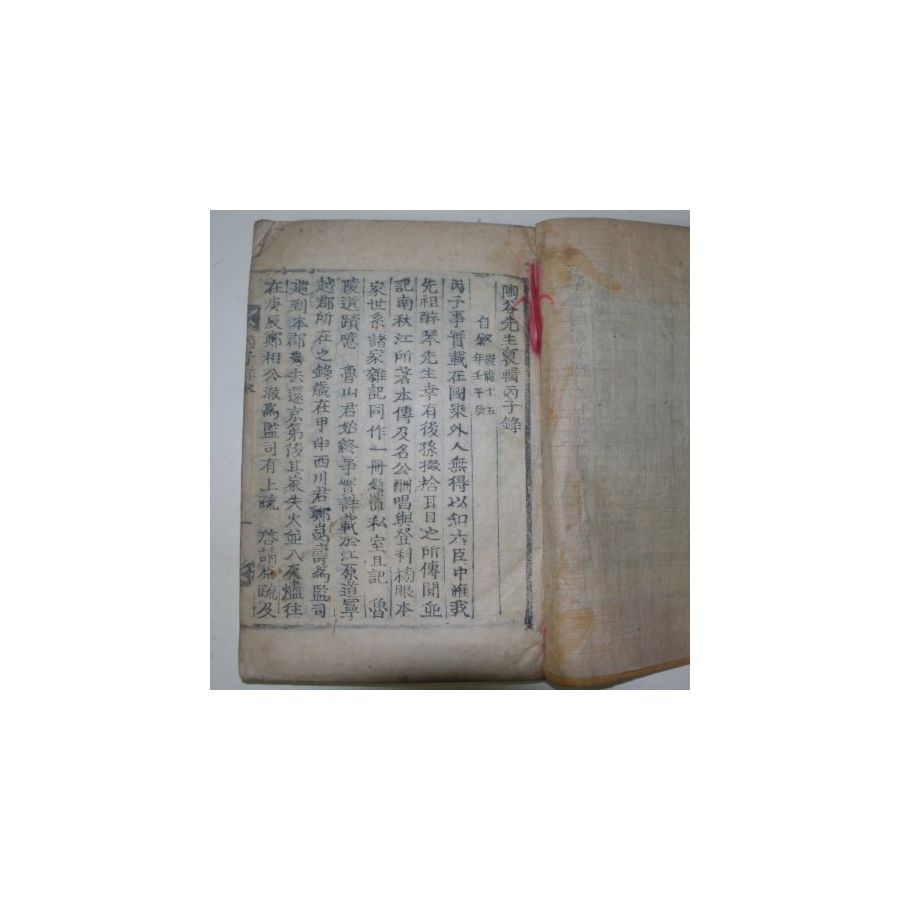 陶谷先生裒輯丙子錄
自敍 崇禎十五年壬午
丙子事實載在國乘外人無得以知六臣中惟我
先祖醉琴先生幸有後孫掇拾耳目之所傳聞並
記南秋江所著本傳及名公酬唱與登科榜眼本
家世系諸家雜記同作一冊 置私室且記 魯
陵遺蹟噫 魯山君始終事實詳載於江原道寧
越郡所在之錄歲在甲申西川君鄭崑壽爲監司
巡到本郡 去還京第後其家失火並入灰燼往
在庚辰鄭相公澈爲監司有上疏 啓請 疏及
丙子錄
一